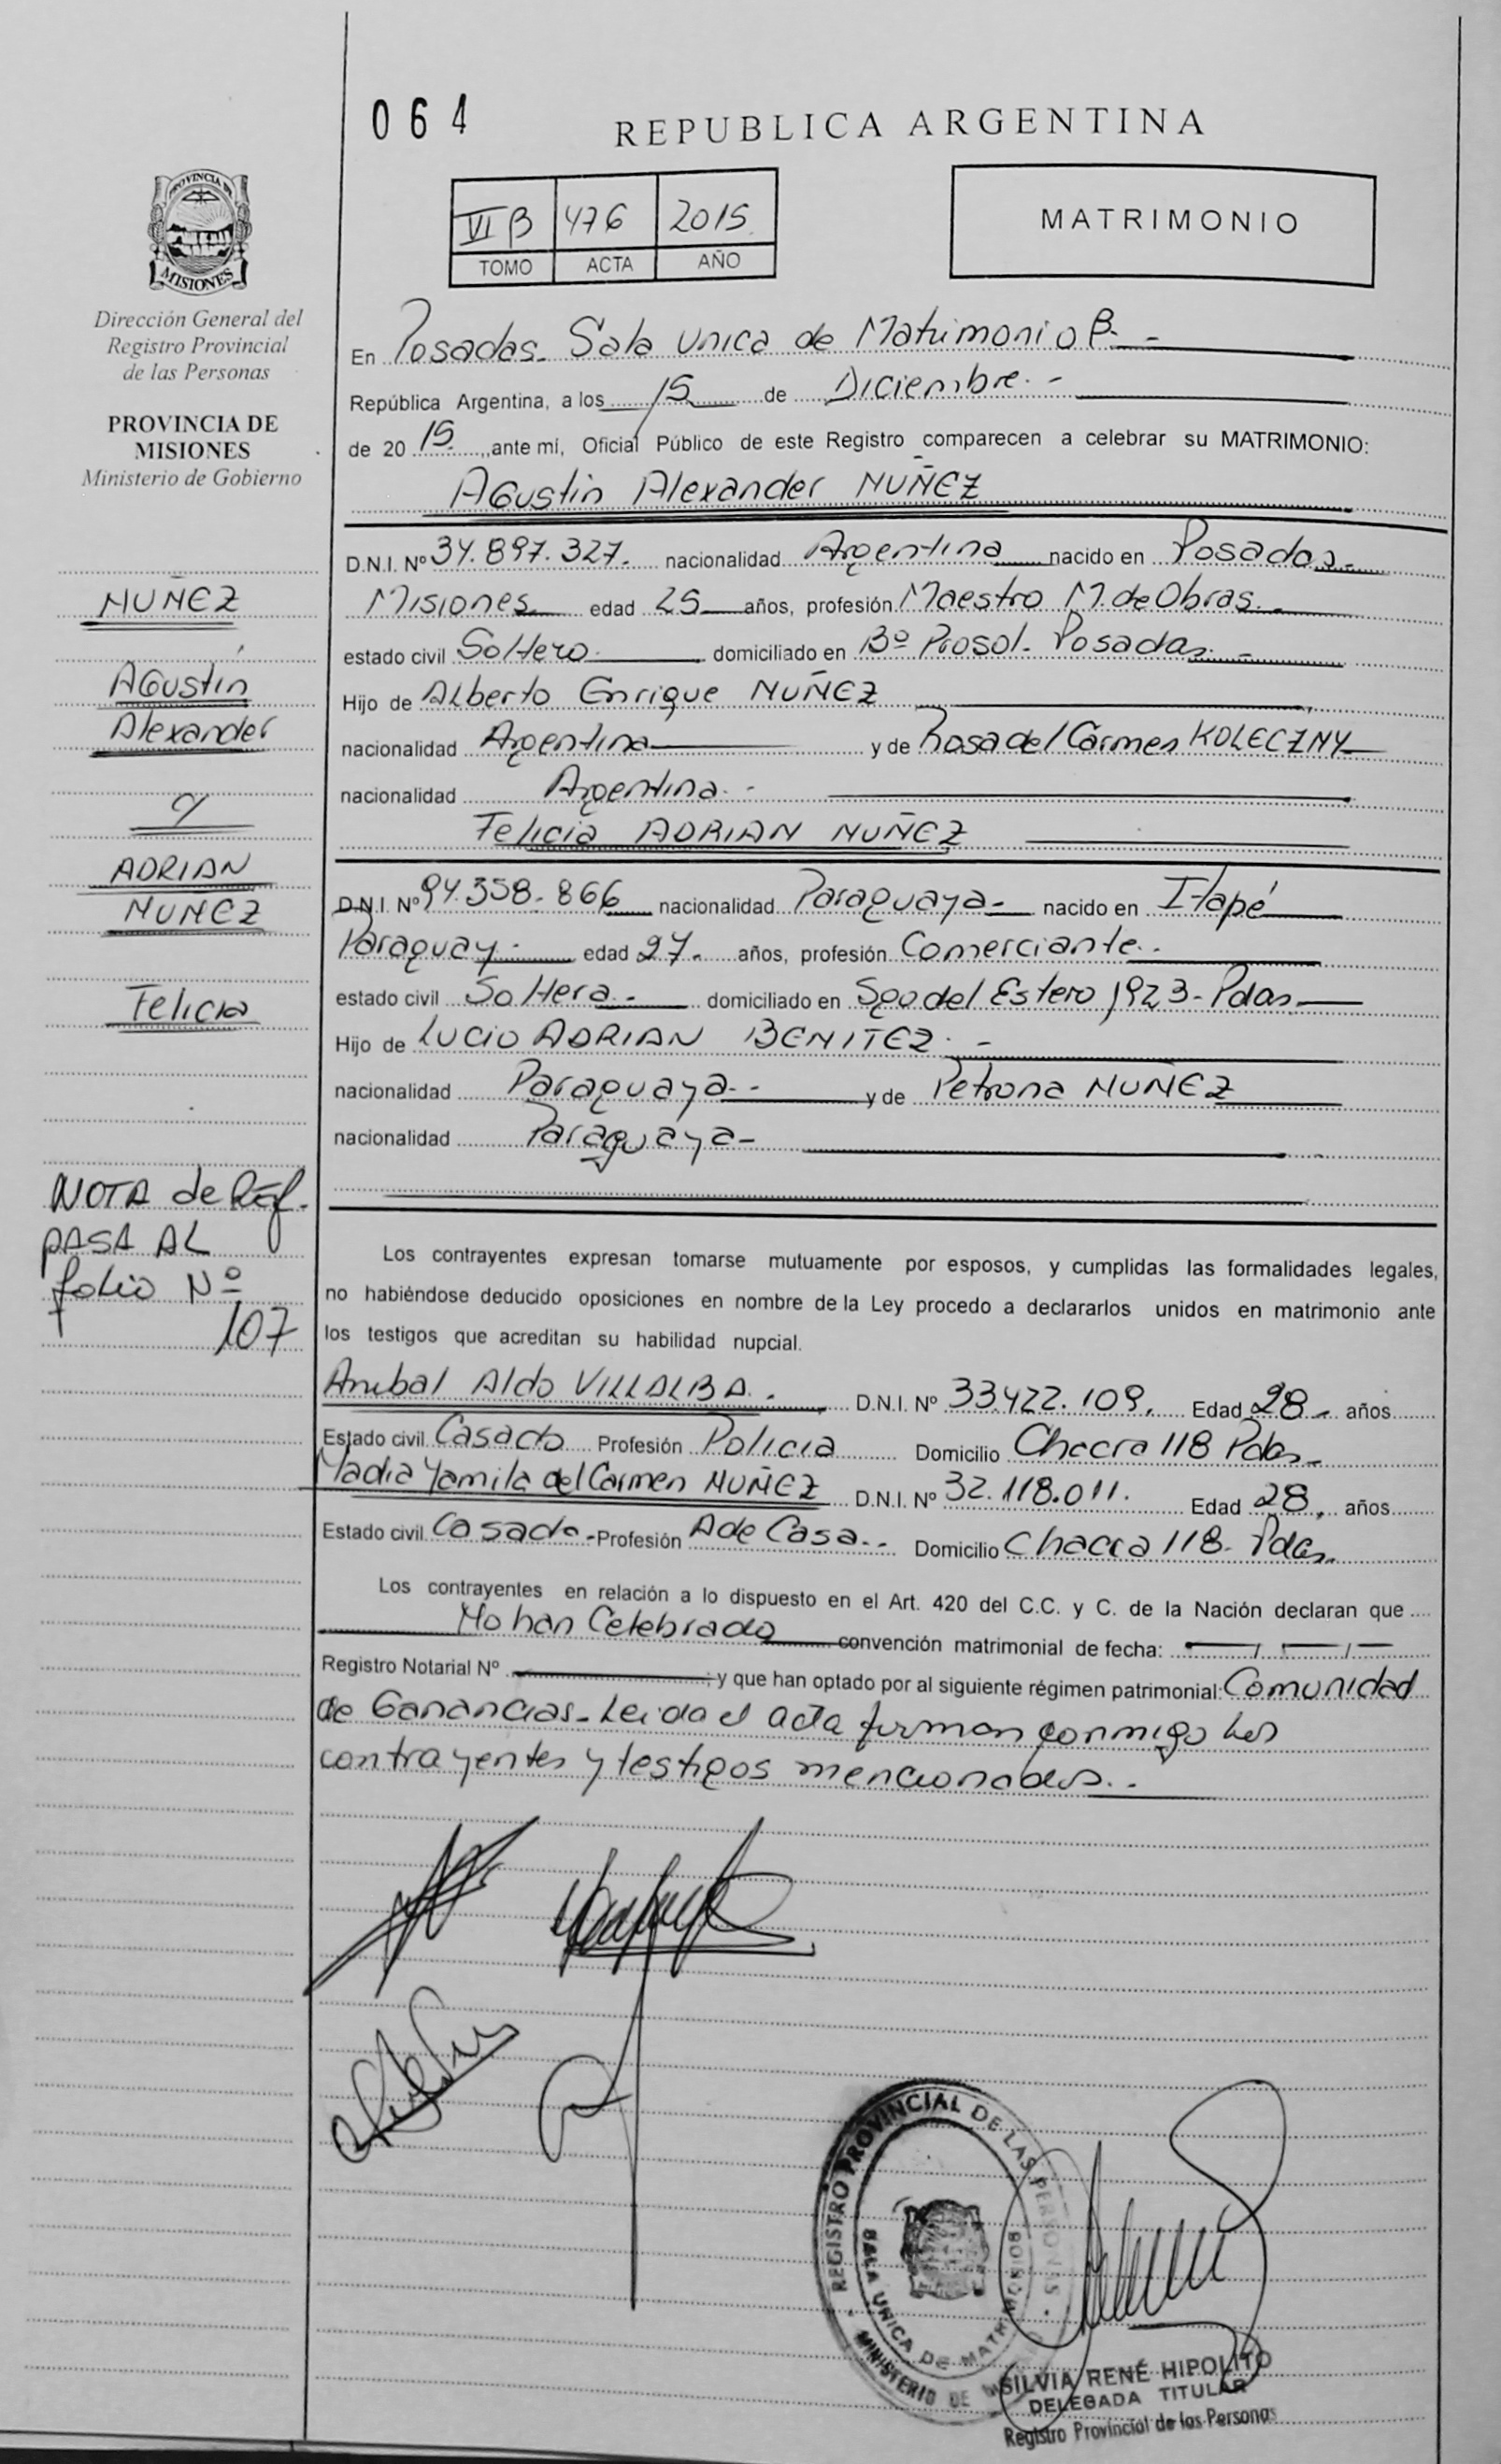 064
REPUBLICA ARGENTINA
VI B 476 2015
TOMO ACTA AÑO
MATRIMONIO
PROVINCIA DE
MISIONES
Dirección General del
Registro Provincial
de las Personas
PROVINCIA DE
MISIONES
Ministerio de Gobierno
NUÑEZ
Agustín
Alexander
y
ADRIAN
NUÑEZ
Felicia
NOTA de Ref.
PASA AL
folio Nº
107
En Posadas- Sala Unica de Matrimonio B.-
República Argentina, a los 15 de Diciembre.-
de 20 15 , ante mí, Oficial Público de este Registro comparecen a celebrar su MATRIMONIO:
Agustin Alexander NUÑEZ
D.N.I. Nº 34.897.327. nacionalidad Argentina nacido en Posadas-
Misiones edad 25 años, profesión Maestro M. de Obras.-
estado civil Soltero domiciliado en Bº Prosol- Posadas.-
Hijo de Alberto Enrique NUÑEZ
nacionalidad Argentina y de Rosa del Carmen KOLECZNY
nacionalidad Argentina.-
Felicia ADRIAN NUÑEZ
D.N.I. Nº 94.358.866 nacionalidad Paraguaya- nacido en Itapé
Paraguay.- edad 27. años, profesión Comerciante.-
estado civil Soltera- domiciliado en Sgo del Estero 1923- Pdas-
Hijo de Lucio ADRIAN BENITEZ.-
nacionalidad Paraguaya.- y de Petrona NUÑEZ
nacionalidad Paraguaya-
Los contrayentes expresan tomarse mutuamente por esposos, y cumplidas las formalidades legales,
no habiéndose deducido oposiciones en nombre de la Ley procedo a declararlos unidos en matrimonio ante
los testigos que acreditan su habilidad nupcial.
Anibal Aldo VILLALBA. D.N.I. Nº 33.422.109. Edad 28- años
Estado civil Casado Profesión Policia Domicilio Chacra 118 Pdas-
Nadia Yamila del Carmen NUÑEZ D.N.I. Nº 32.118.011. Edad 28. años
Estado civil Casada- Profesión A de Casa.- Domicilio Chacra 118- Pdas-
Los contrayentes en relación a lo dispuesto en el Art. 420 del C.C. y C. de la Nación declaran que
No han Celebrado convención matrimonial de fecha: — / — / —
Registro Notarial Nº — ; y que han optado por al siguiente régimen patrimonial: Comunidad
de Ganancias- Leida el acta firman conmigo los
contrayentes y testigos mencionados.-
REGISTRO PROVINCIAL DE LAS PERSONAS
SALA UNICA DE MATRIMONIOS
MINISTERIO DE
SILVIA RENÉ HIPOLITO
DELEGADA TITULAR
Registro Provincial de las Personas